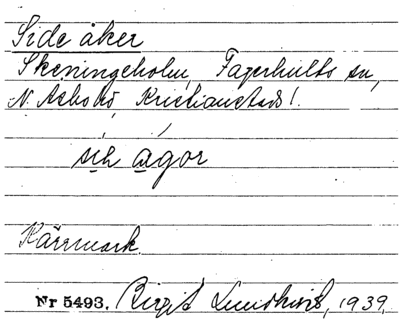 Side åker
Skeningeholm, Fagerhults sn,
N. Åsbo hd, Kristianstads l.
sih agor
Kärrmark.
Nr 5493. Birgit Lundkvist, 1939.